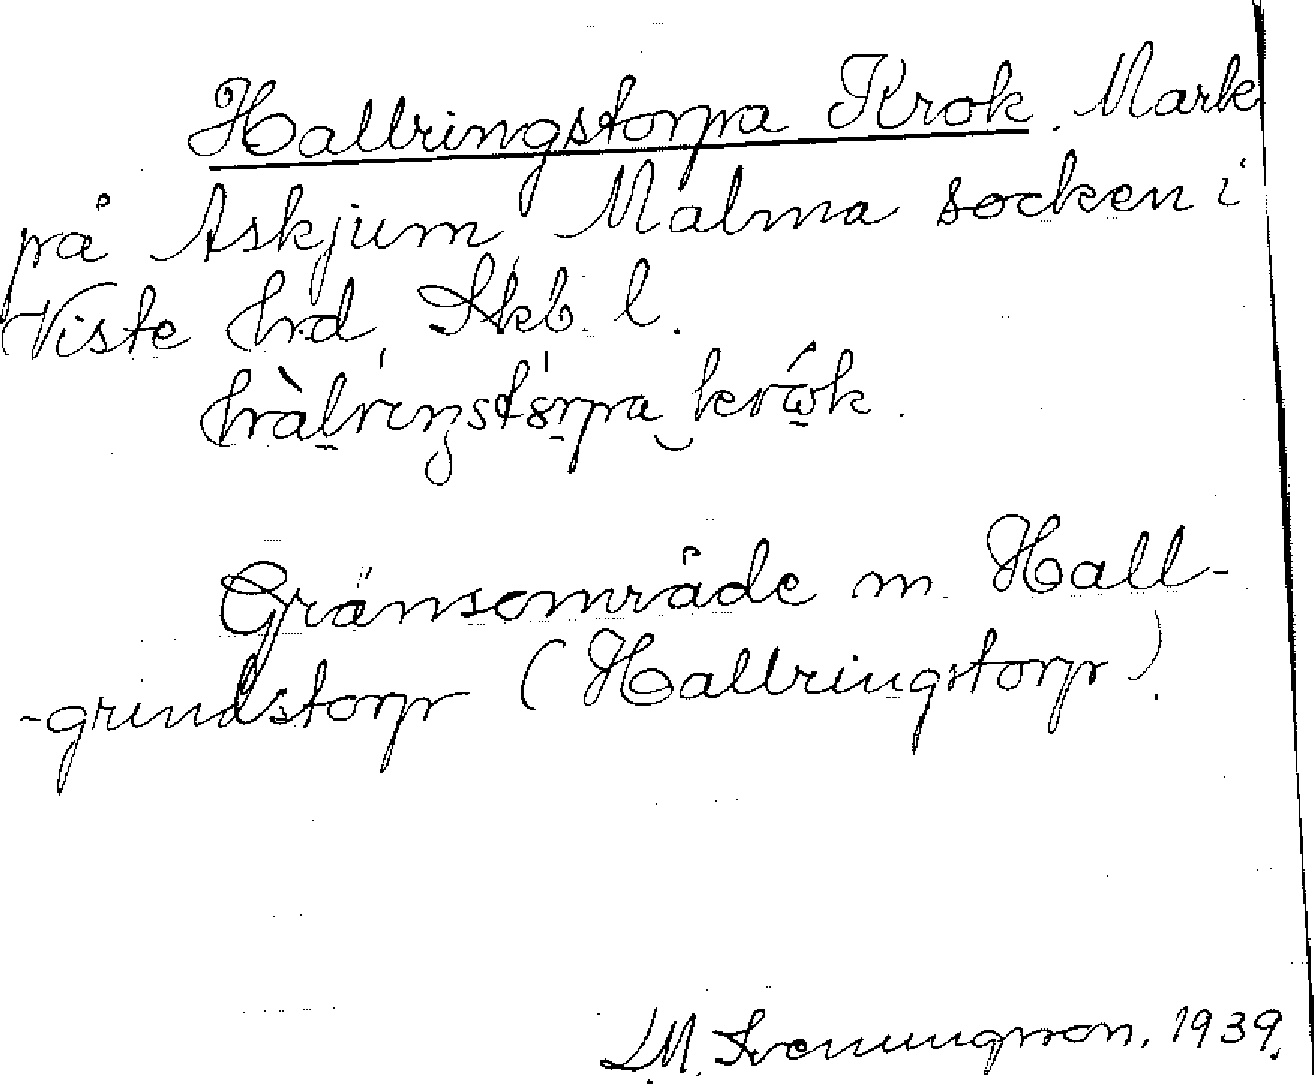 Hallringstorpa Krok. Mark
på Askjum, Malma socken i
Viste hrd, Skb. l.
Gränsområde m. Hall-
-grindstorp (Hallringstorp).
L.M. Svenungsson. 1939.